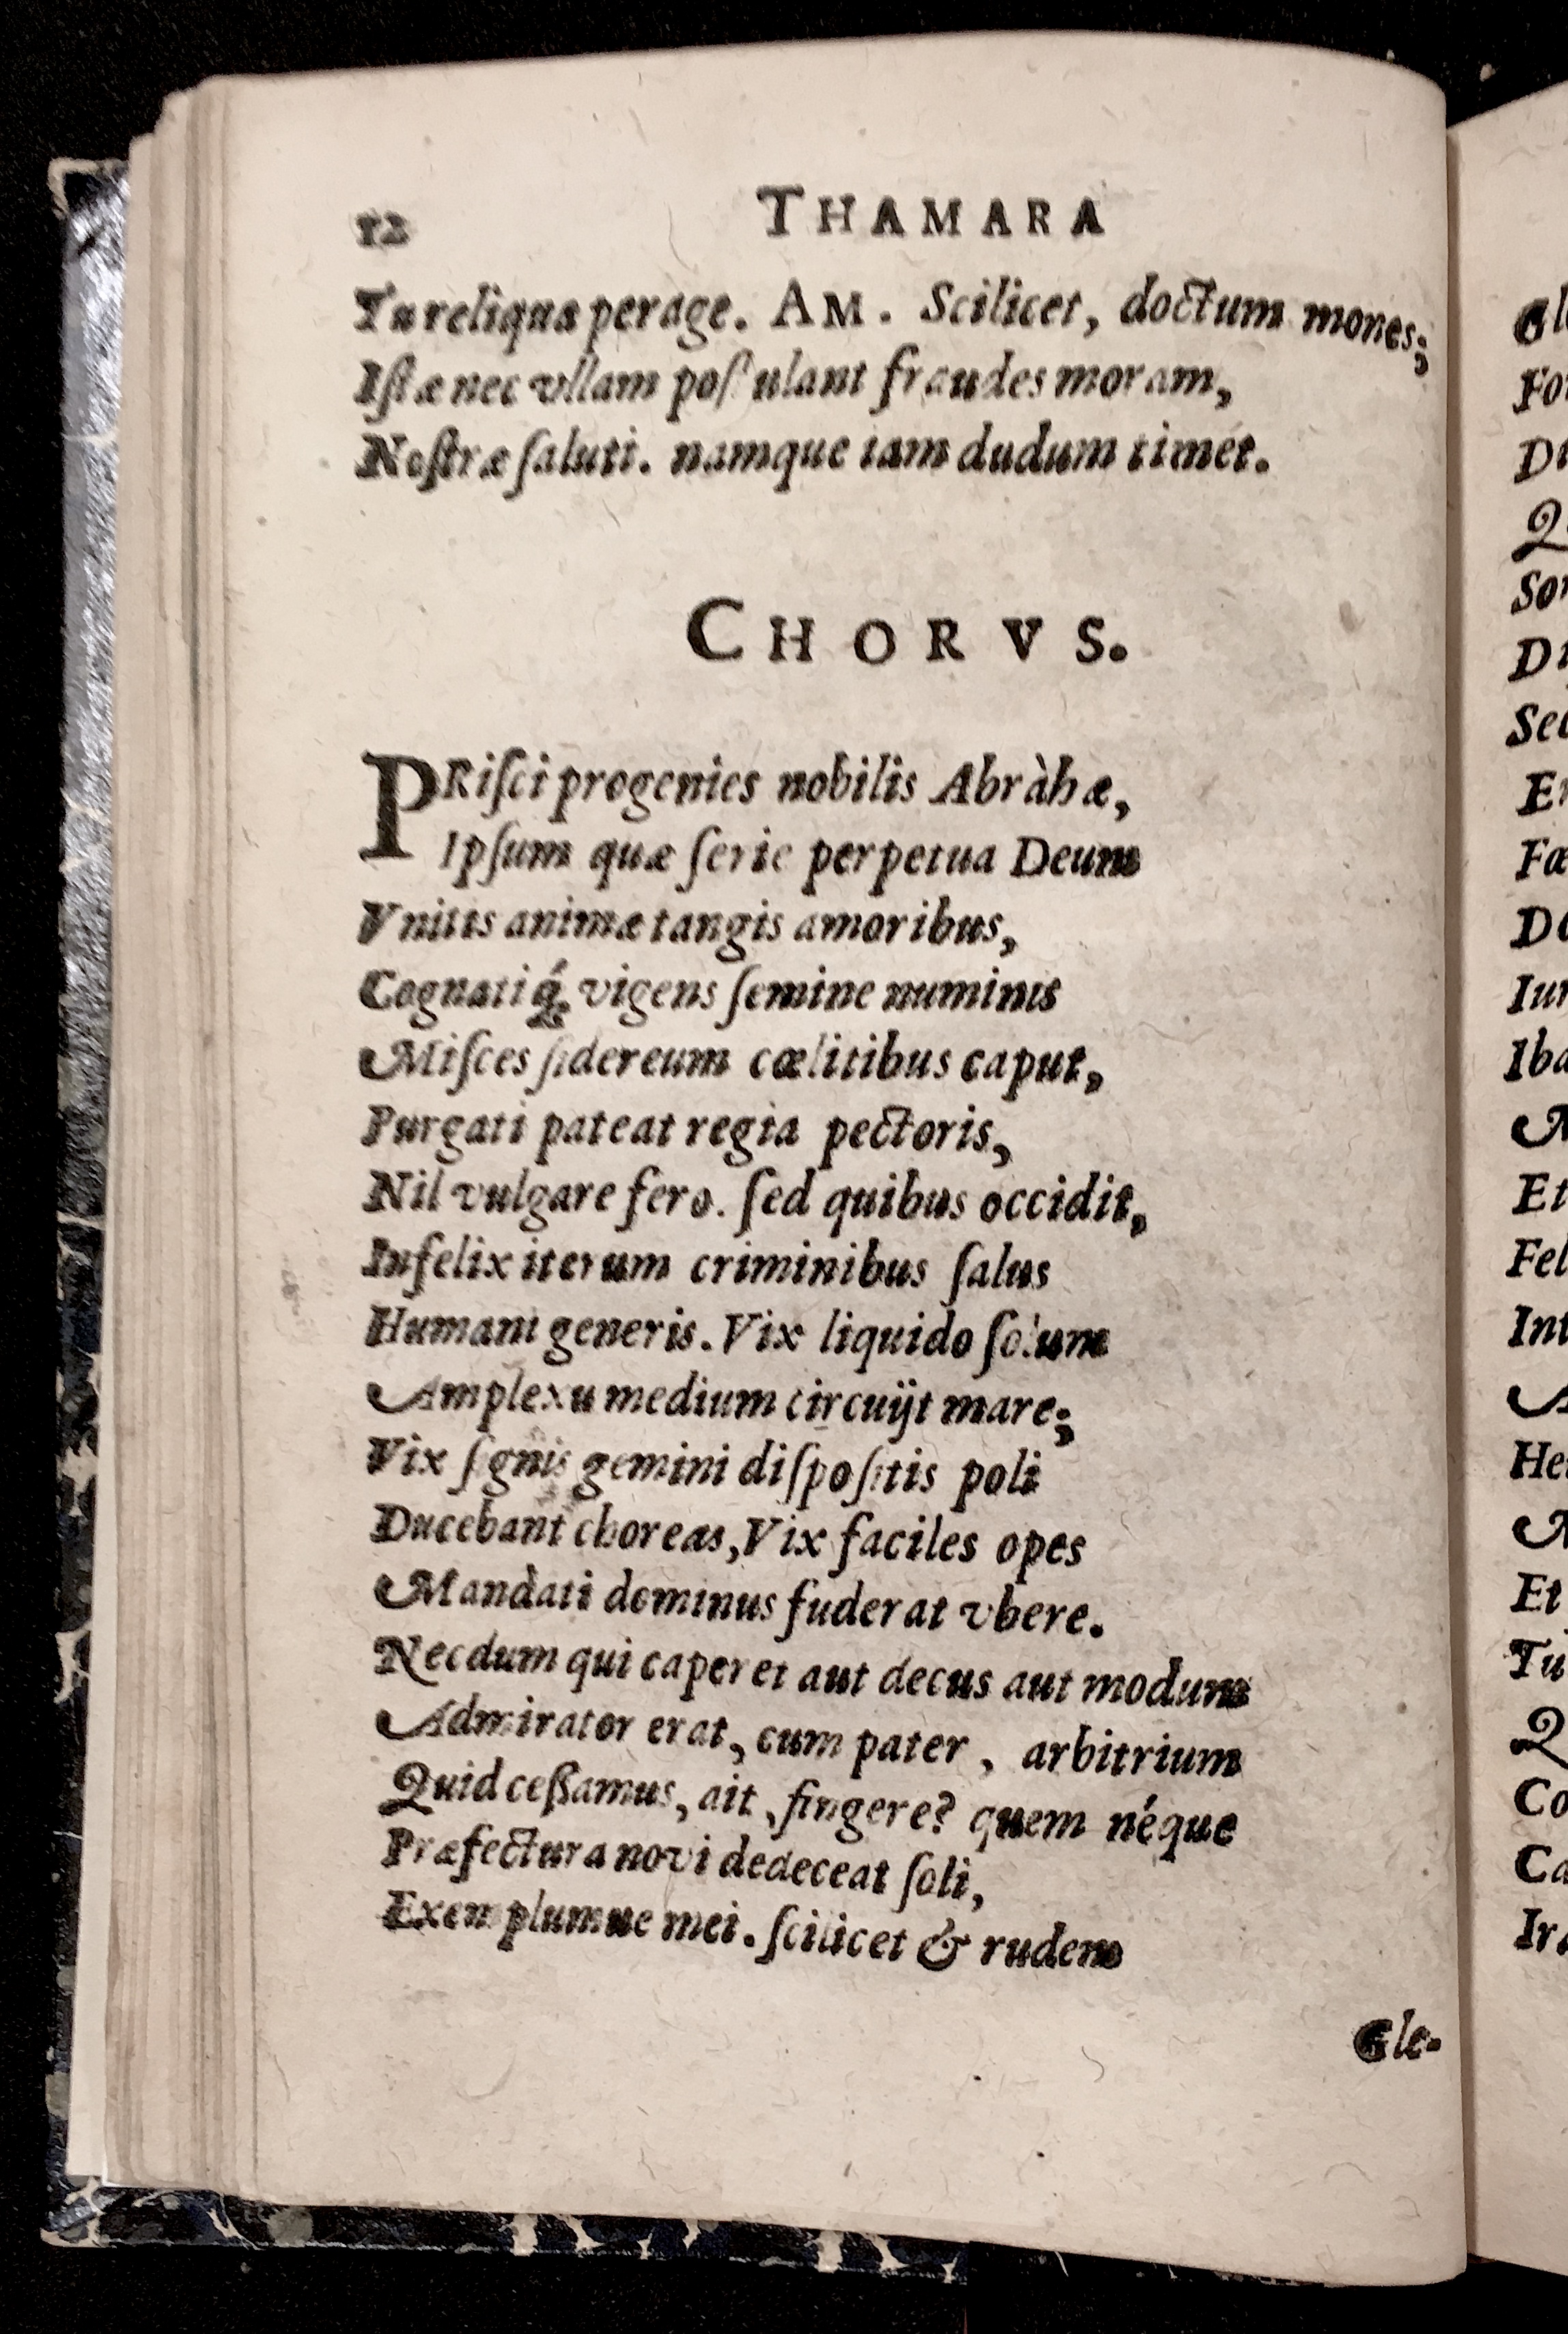 12 THAMARA
Tu reliqua perage. AM. Scilicet, doctum mones;
Istæ nec vllam postulant fraudes moram,
Nostræ ſaluti. namque iam dudum timet.
CHORVS.
PRiſci progenies nobilis Abràhæ,
Ipſum quæ ſerie perpetua Deum
Vnitis animæ tangis amoribus,
Cognatiq́; vigens ſemine numinis
Miſces ſidereum cœlitibus caput,
Purgati pateat regia pectoris,
Nil vulgare fero. ſed quibus occidit,
Infelix iterum criminibus ſalus
Humani generis. Vix liquido ſolum
Amplexu medium circuijt mare;
Vix ſignis gemini diſpoſitis poli
Ducebant choreas, Vix faciles opes
Mandati dominus fuderat vbere.
Necdum qui caperet aut decus aut modum
Admirator erat, cum pater, arbitrium
Quid ceßamus, ait, fingere? quem néque
Præfectura novi dedeceat ſoli,
Exemplumue mei. ſcilicet & rudem
Gle-